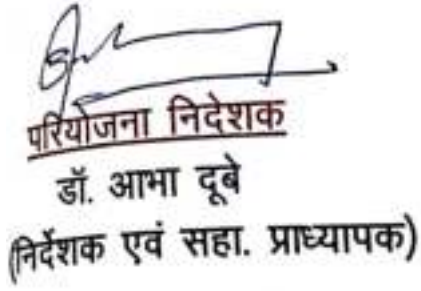 परियोजना निदेशक
डॉ. आभा दूबे
(निर्देशक एवं सहा. प्राध्यापक)